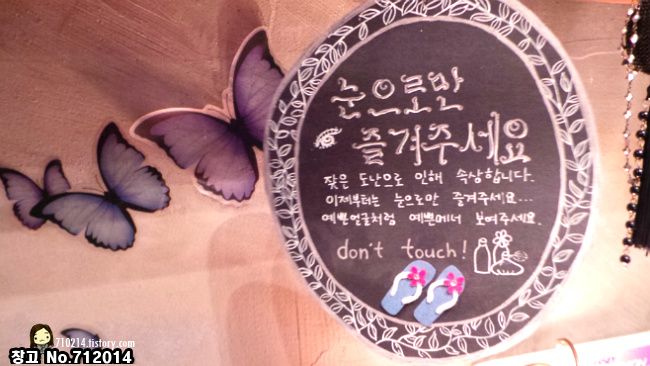 눈으로만
즐겨주세요
잦은 도난으로 인해 속상합니다.
이제부터는 눈으로만 즐겨주세요...
예쁜얼굴처럼 예쁜매너 보여주세요.
don't touch!
710214.tistory.com
장고 No.712014